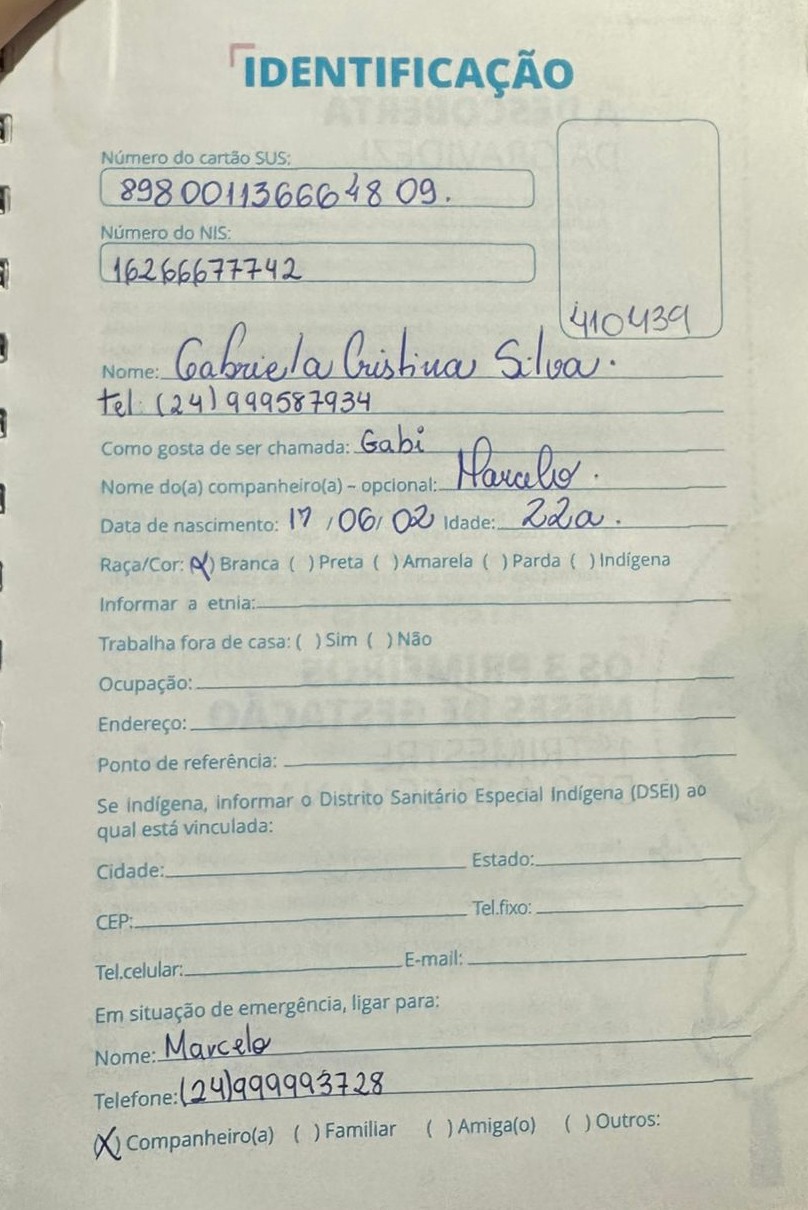 IDENTIFICAÇÃO
Número do cartão SUS:
898 001136664809.
Número do NIS:
16266677742
410439
Nome: Gabriela Cristina Silva.
tel: (24) 999587934
Como gosta de ser chamada: Gabi
Nome do(a) companheiro(a) – opcional: Marcelo.
Data de nascimento: 17 / 06 / 02 Idade: 22a.
Raça/Cor: (X) Branca ( ) Preta ( ) Amarela ( ) Parda ( ) Indígena
Informar a etnia:
Trabalha fora de casa: ( ) Sim ( ) Não
Ocupação:
Endereço:
Ponto de referência:
Se indígena, informar o Distrito Sanitário Especial Indígena (DSEI) ao
qual está vinculada:
Cidade: Estado:
CEP: Tel.fixo:
Tel.celular: E-mail:
Em situação de emergência, ligar para:
Nome: Marcelo
Telefone: (24)999993728
(X) Companheiro(a) ( ) Familiar ( ) Amiga(o) ( ) Outros: